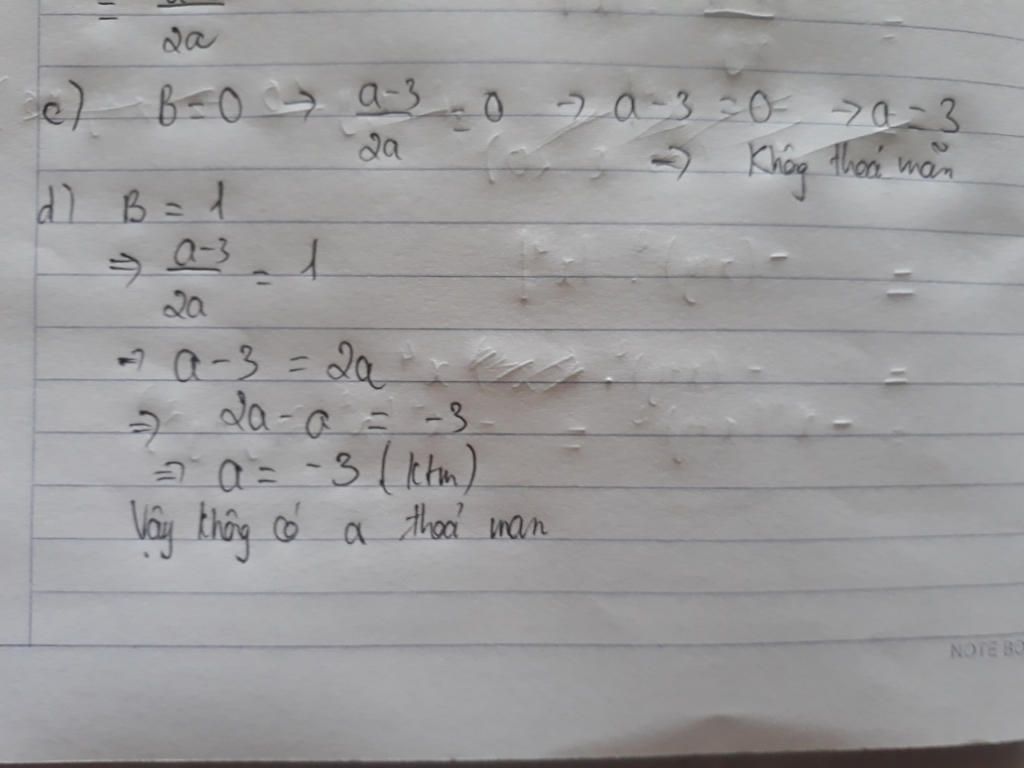 = 2a
c) B = 0 → a-3/2a = 0 → a - 3 = 0 → a = 3
⇒ Không thoả mãn
d) B = 1
⇒ a-3/2a = 1
→ a - 3 = 2a
⇒ 2a - a = -3
⇒ a = -3 (ktm)
Vậy không có a thoả man
NOTE BO